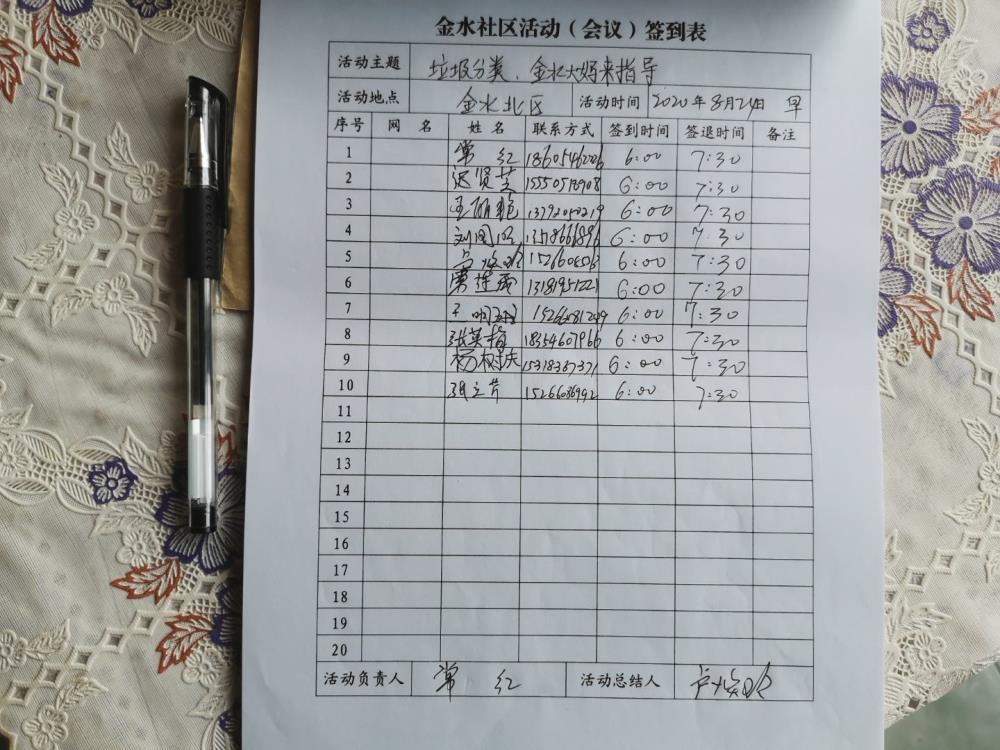 金水社区活动（会议）签到表
活动主题 垃圾分类、金水大妈来指导
活动地点 金水北区 活动时间 2020年8月24日 早
序号 网名 姓名 联系方式 签到时间 签退时间 备注
1 常红 6:00 7:30
2 迟贤芝 6:00 7:30
3 6:00 7:30
4 6:00 7:30
5 6:00 7:30
6 6:00 7:30
7 6:00 7:30
8 张英梅 18354607966 6:00 7:30
9 杨树庆 15318367371 6:00 7:30
10 张立芹 15266086992 6:00 7:30
11
12
13
14
15
16
17
18
19
20
活动负责人 常红 活动总结人